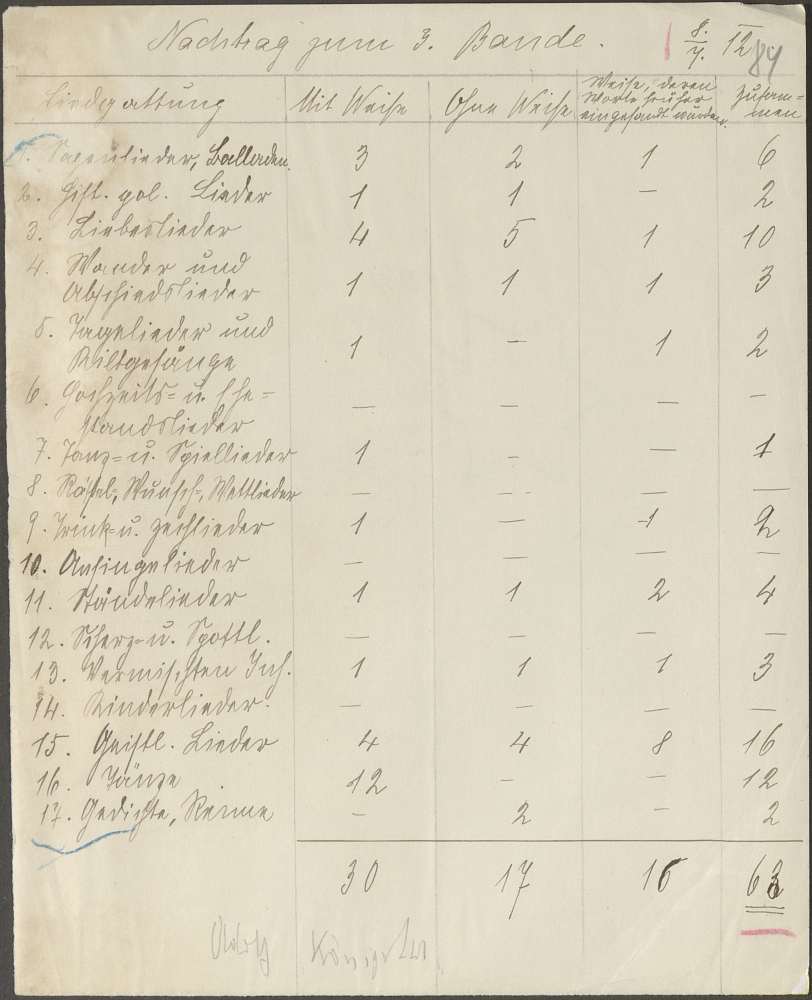 Nachtrag zum 3. Bande. 8./7. 12 84
Liedgattung Mit Weise Ohne Weise Weise, deren Worte früher eingesandt wurden. Zusam=men
1. Sagenlieder, Balladen. 3 2 1 6
2. Hist. pol. Lieder 1 1 – 2
3. Liebeslieder 4 5 1 10
4. Wander und
Abschiedslieder 1 1 1 3
5. Tagelieder und
Kiltgesänge 1 – 1 2
6. Hochzeits= u. Ehe=
standslieder – – – –
7. Tanz= u. Spiellieder 1 – – 1
8. Rätsel=, Wunsch=, Wettlieder – – – –
9. Trink= u. Zechlieder 1 – 1 2
10. Ansingelieder – – – –
11. Ständelieder 1 1 2 4
12. Scherz= u. Spottl. – – – –
13. Vermischten Inh. 1 1 1 3
14. Kinderlieder. – – – –
15. Geistl. Lieder 4 4 8 16
16. Tänze 12 – – 12
17. Gedichte, Reime – 2 – 2
30 17 16 63